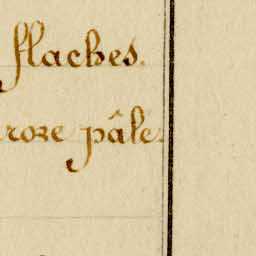 flaches.
rose pâle.